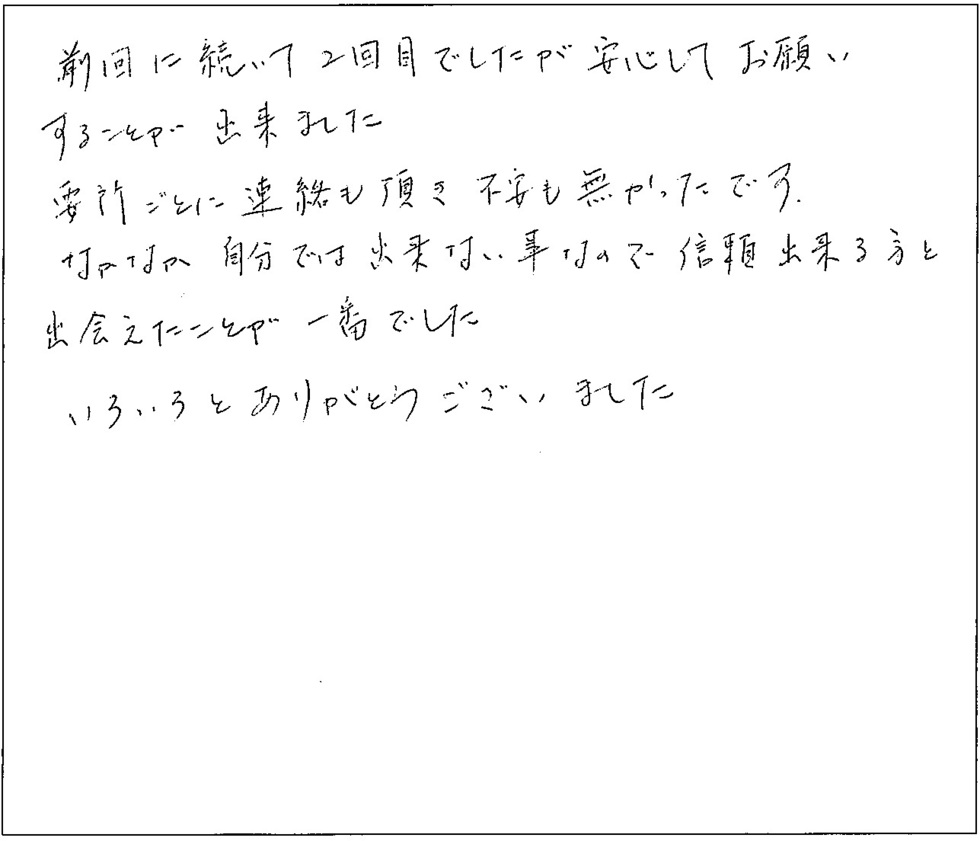 前回に続いて2回目でしたが安心してお願い
することが出来ました
要所ごとに連絡も頂き不安も無かったです.
なかなか自分では出来ない事なので信頼出来る方と
出会えたことが一番でした
いろいろとありがとうございました